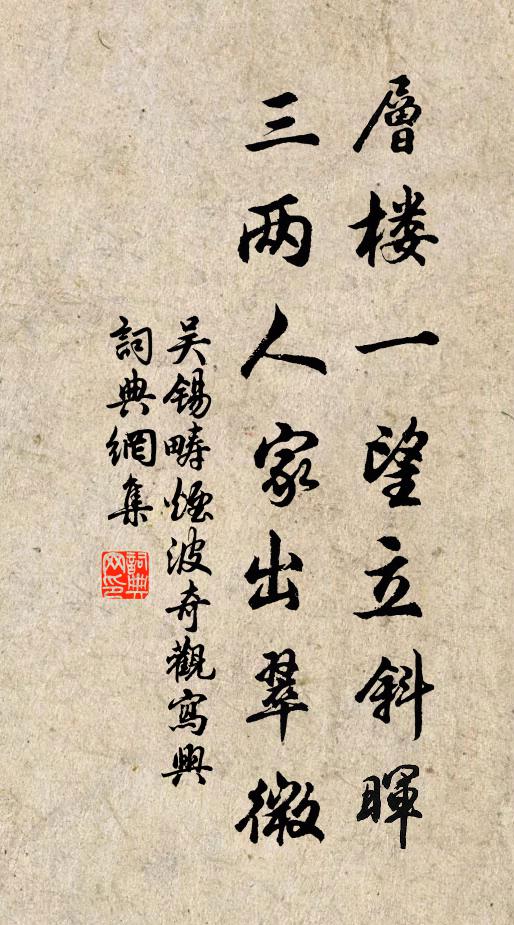 層楼一望立斜暉
三两人家出翠微
吴錫疇煙波奇觀寫興
詞典網集
詞典网印